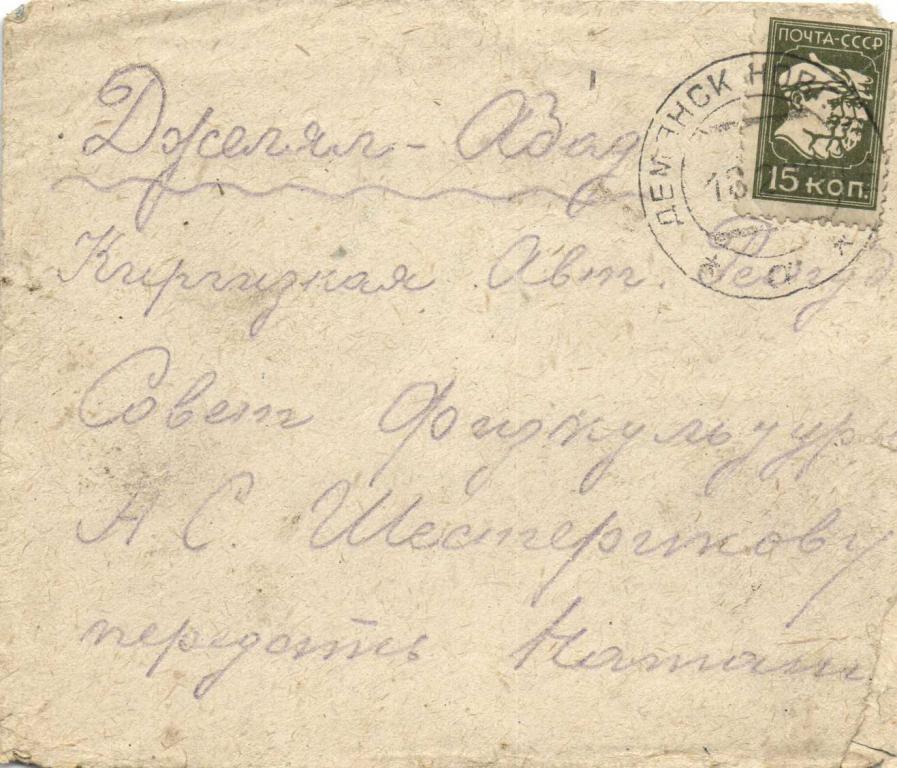 ПОЧТА-СССР
15 КОП.
ДЕМЯНСК
18
Джелял-Абад
Киргизкая Авт.
Совет Физкультуры
А. С. Шестерикову
передать